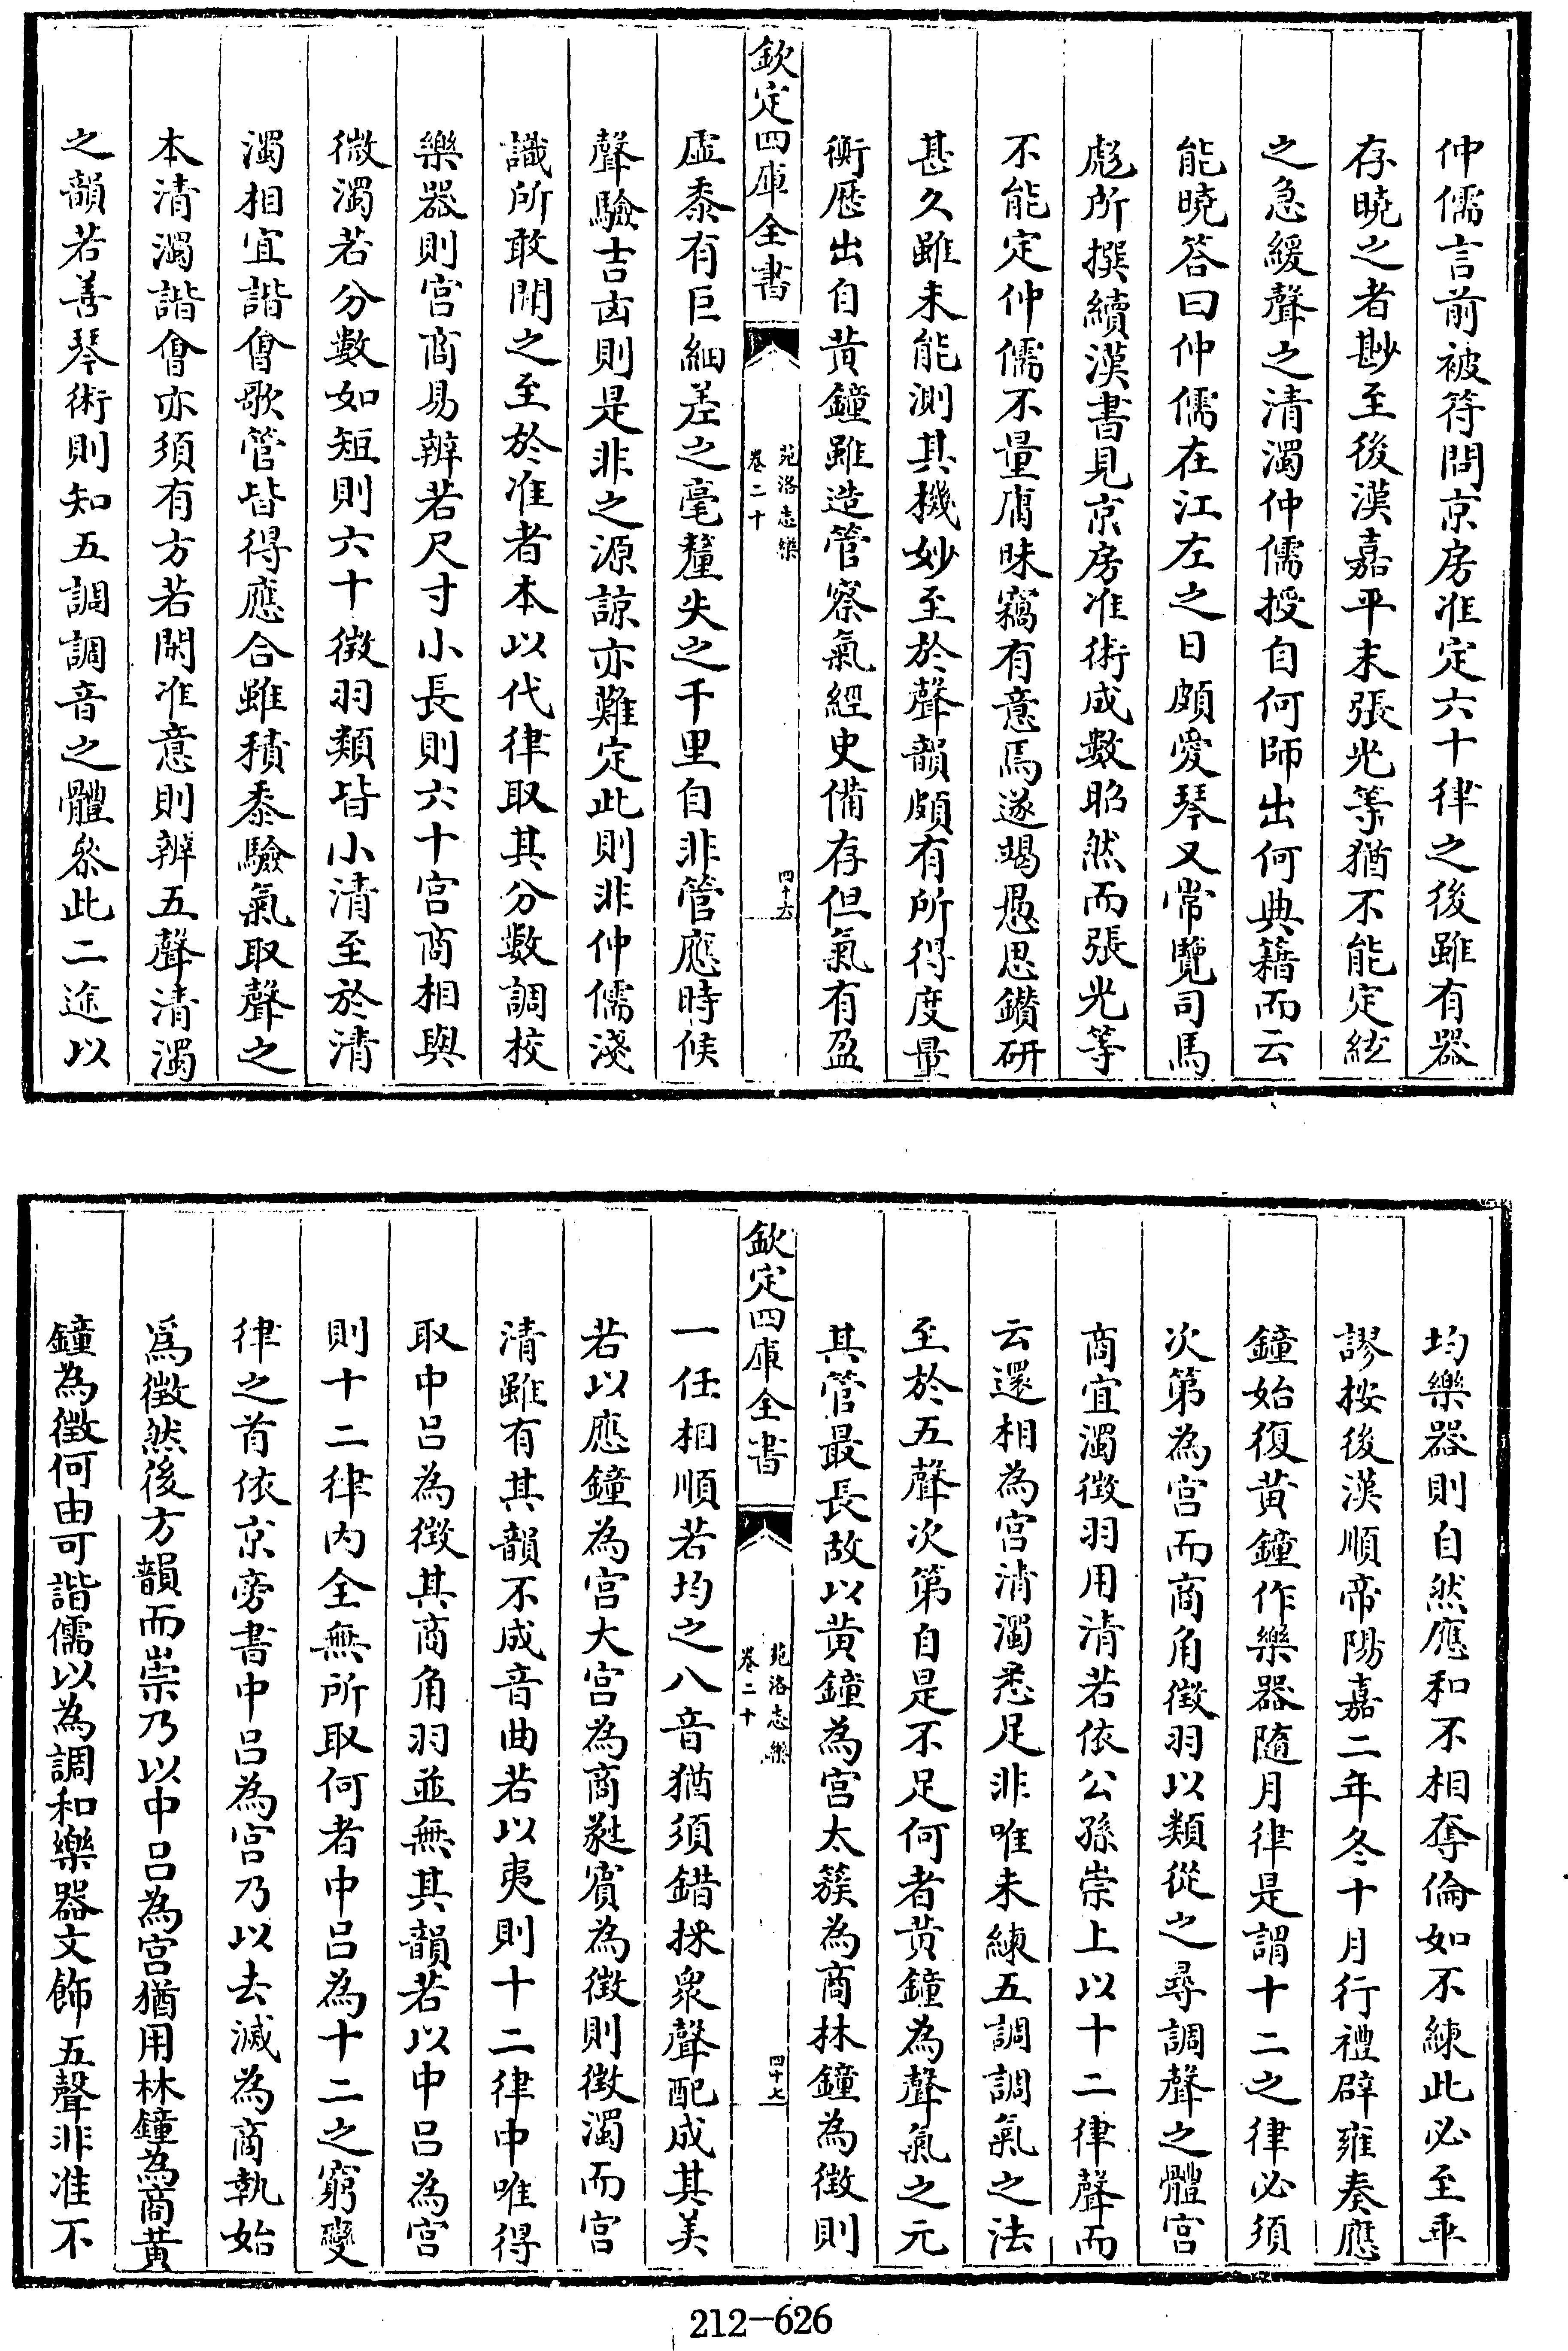 仲儒言前被符問京房准定六十律之後雖有器
存曉之者尠至後漢嘉平末張光等猶不能定絃
之急緩聲之清濁仲儒授自何師出何典籍而云
能曉答曰仲儒在江左之日頗愛琴又常覽司馬
彪所撰續漢書見京房准術成數昭然而張光等
不能定仲儒不量庸昧竊有意焉遂竭愚思鑽研
甚久雖未能測其機妙至於聲韻頗有所得度量
衡厯出自黃鐘雖造管察氣經史備存但氣有盈
欽定四庫全書
苑洛志樂
卷二十
四十六
虛黍有巨細差之毫釐失之千里自非管應時候
聲驗吉凶則是非之源諒亦難定此則非仲儒淺
識所敢聞之至於准者本以代律取其分數調校
樂器則宮商易辨若尺寸小長則六十宮商相與
微濁若分數如短則六十徵羽類皆小清至於清
濁相宜諧會歌管皆得應合雖積黍驗氣取聲之
本清濁諧會亦須有方若閑准意則辨五聲清濁
之韻若善琴術則知五調調音之體叅此二途以
均樂器則自然應和不相奪倫如不練此必至乖
謬按後漢順帝陽嘉二年冬十月行禮辟雍奏應
鐘始復黃鐘作樂器隨月律是謂十二之律必須
次第為宮而商角徵羽以類從之尋調聲之體宮
商宜濁徵羽用清若依公孫崇上以十二律聲而
云還相為宮清濁悉足非唯未練五調調氣之法
至於五聲次第自是不足何者黃鐘為聲氣之元
其管最長故以黃鐘為宮太簇為商林鐘為徵則
欽定四庫全書
苑洛志樂
卷二十
四十七
一任相順若均之八音猶須錯採衆聲配成其美
若以應鐘為宮大宮為商蕤賓為徵則徵濁而宮
清雖有其韻不成音曲若以夷則十二律中唯得
取中呂為徵其商角羽並無其韻若以中呂為宮
則十二律內全無所取何者中呂為十二之窮變
律之首依京旁書中呂為宮乃以去滅為商執始
爲徵然後方韻而崇乃以中呂為宮猶用林鐘為商黃
鐘為徵何由可諧儒以為調和樂器文飾五聲非准不
212-626